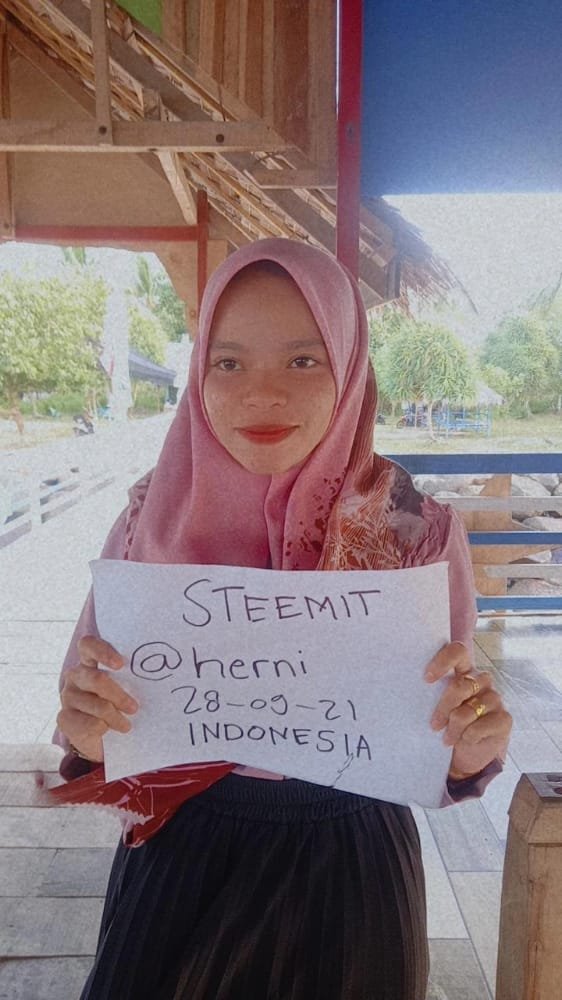 STEEMIT
@herni
28-09-21
INDONESIA